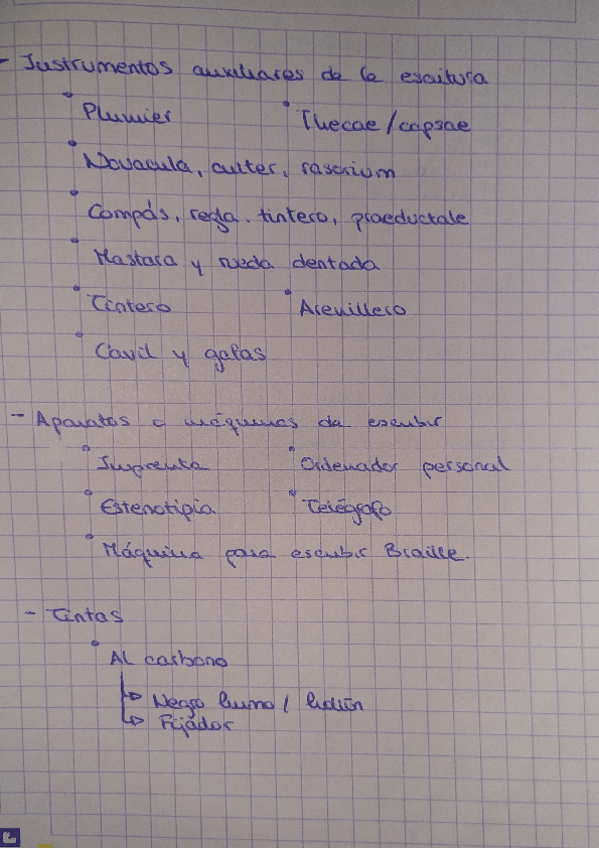 - Instrumentos auxiliares de la escritura
• Plumier • Thecae/capsae
• Novacula, culter, rasorium
• Compás, regla. tintero, praeductale
• Mastara y rueda dentada
• Tintero • Arenillero
• Cavil y gafas
- Aparatos o máquinas de escribir
• Imprenta • Ordenador personal
• Estenotipia • Telégrafo
• Máquina para escribir Braille.
- Tintas
• Al carbono
→ Negro humo / hollín
→ Fijador